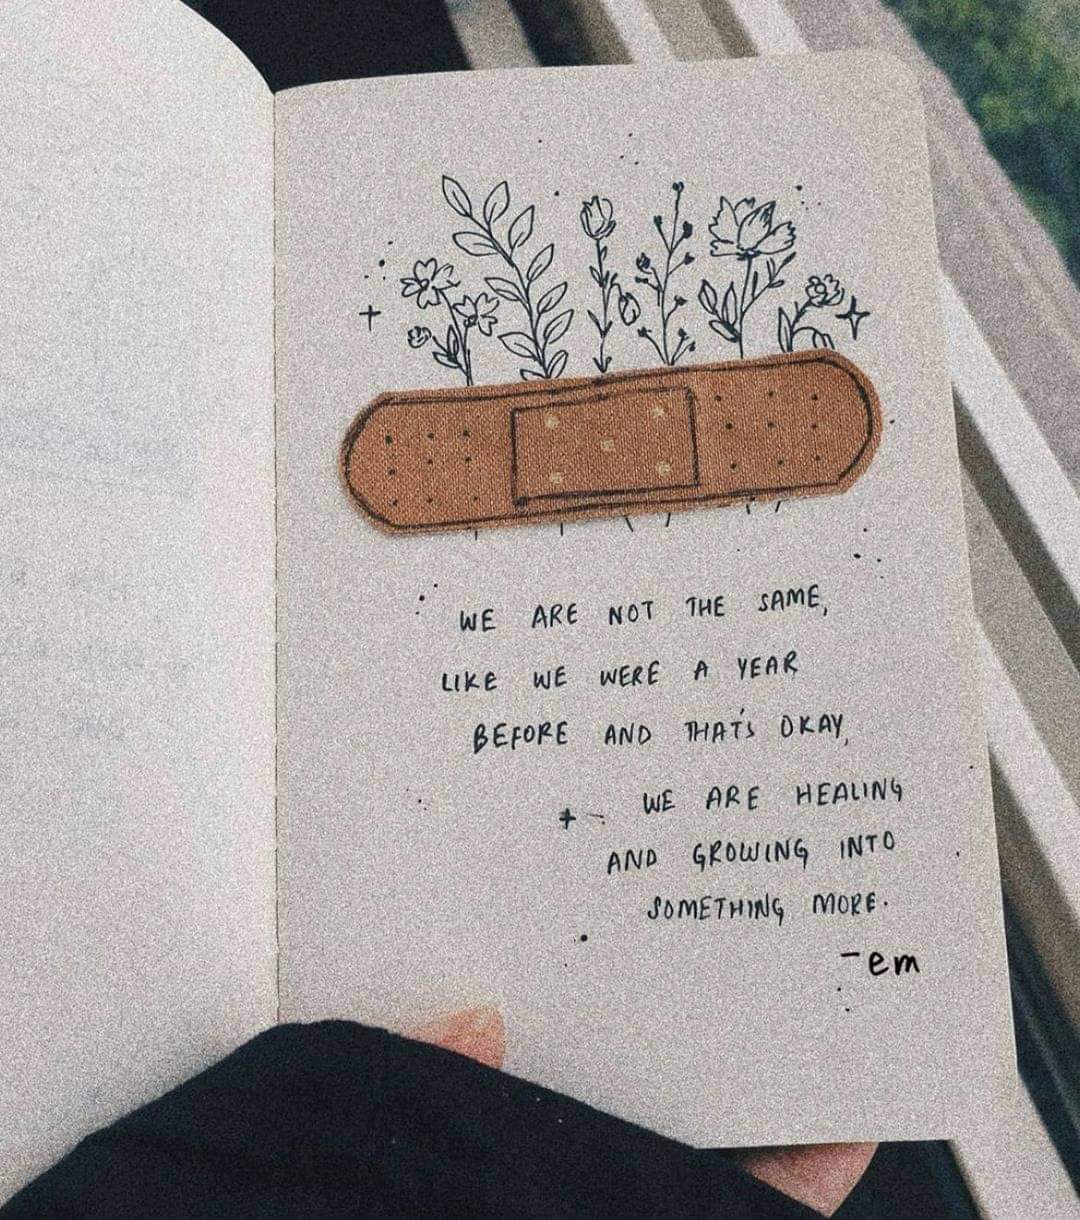 WE ARE NOT THE SAME,
LIKE WE WERE A YEAR
BEFORE AND THAT'S OKAY,
WE ARE HEALING
AND GROWING INTO
SOMETHING MORE.
-em